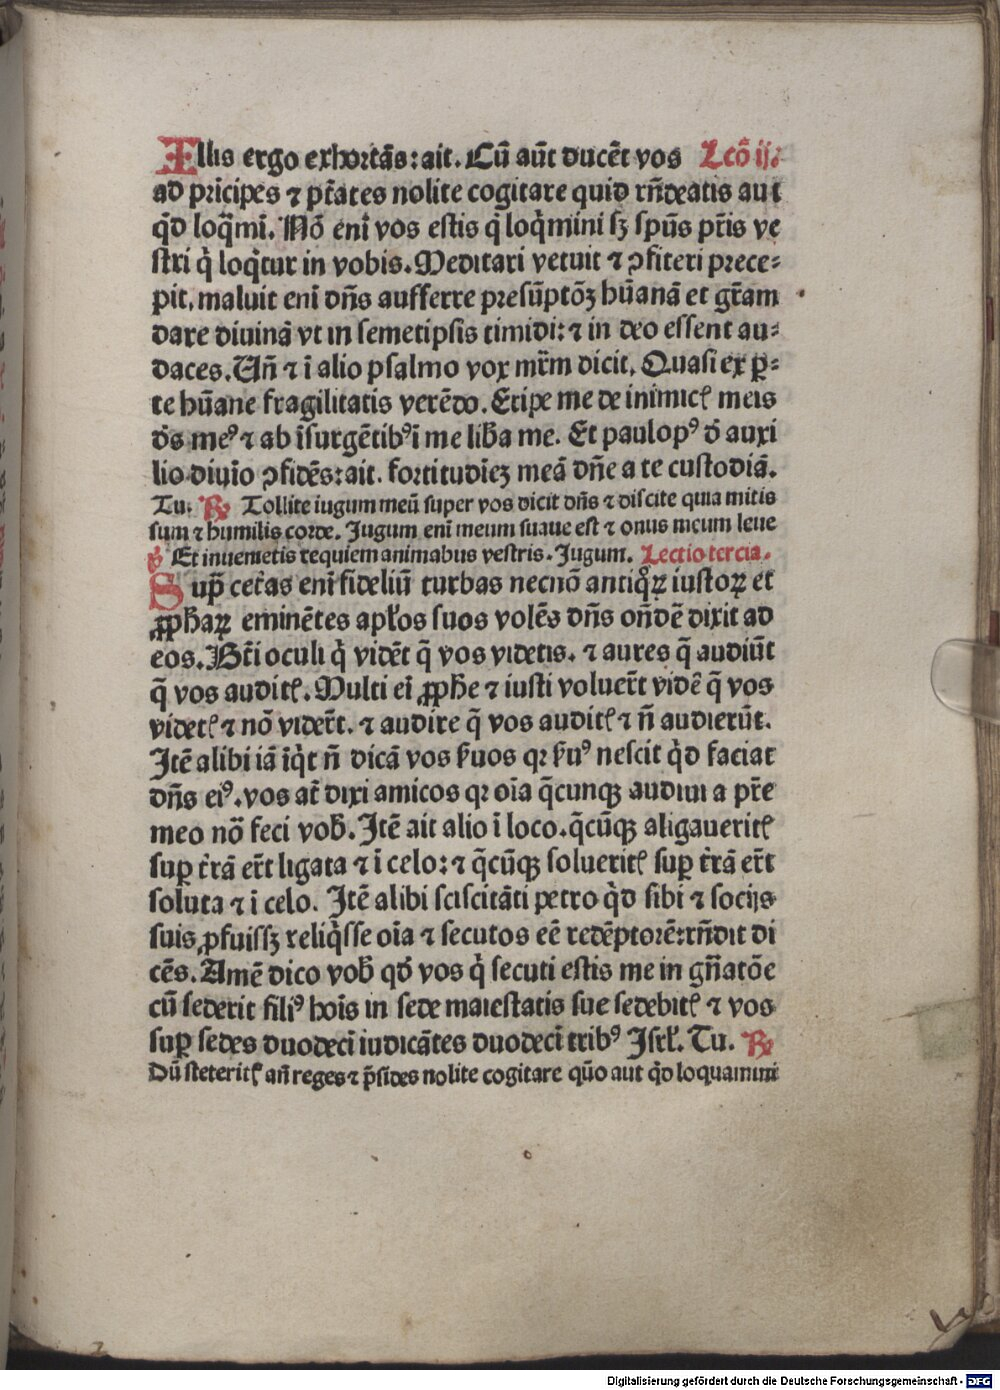 Illis ergo exhortãs: ait. Cũ aũt ducẽt vos Lcõ ij.
ad prĩcipes ⁊ pt̃ates nolite cogitare quid rñdeatis aut
qd̃ loq̃mĩ. Nõ enĩ vos estis q̇ loq̇mini sꝫ spũs pr̃is ve
stri q̇ loq̇tur in vobis. Meditari vetuit ⁊ ꝯfiteri prece⸗
pit, maluit enĩ dñs aufferre presũptõꝫ hũanã et gr̃am
dare diuinã vt in semetipsis timidi: ⁊ in deo essent au⸗
daces. Uñ ⁊ ĩ alio psalmo vox mr̃m dicit. Quasi ex ꝑ⸗
te hũane fragilitatis verẽdo. Eripe me de inimicꝭ meis
ds̃ meꝰ ⁊ ab ĩsurgẽtibꝰ ĩ me liƀa me. Et paulopꝰ d̃ auxi
lio diuĩo ꝯfidẽs: ait. fortitudiẽꝫ meã dñe a te custodiã.
Tu. ℟ Tollite iugum meũ super vos dicit dñs ⁊ discite quia mitis
sum ⁊ humilis corde. Jugum enĩ meum suaue est ⁊ onus meum leue
℣ Et inuenietis requiem animabus vestris. Jugum. Lectio tercia.
Suꝑ cet̃as enĩ fideliũ turbas necnõ antiq̇ꝝ iustoꝝ et
ꝓphaꝝ eminẽtes apl̃os suos volẽs dñs oñdẽ dixit ad
eos. Bt̃i oculi q̇ vidẽt q̃ vos videtis. ⁊ aures q̃ audiũt
q̃ vos auditꝭ. Multi eĩ ꝓphe ⁊ iusti voluer̃t vidẽ q̃ vos
videtꝭ ⁊ nõ vider̃t. ⁊ audire q̃ vos auditꝭ ⁊ ñ audierũt.
Itẽ alibi iã ĩq̇t ñ dicã vos ẜuos qꝛ ẜuꝰ nescit qd̃ faciat
dñs eiꝰ. vos at̃ dixi amicos qꝛ oĩa q̃cunqꝫ audiui a pr̃e
meo nõ feci vob̃. Itẽ ait alio ĩ loco. q̃cũqꝫ aligaueritꝭ
suꝑ tr̃ã er̃t ligata ⁊ ĩ celo: ⁊ q̃cũqꝫ solueritꝭ suꝑ tr̃ã er̃t
soluta ⁊ ĩ celo. Itẽ alibi sciscitãti petro qd̃ sibi ⁊ socijs
suis ꝓfuissꝫ reliq̇sse oĩa ⁊ secutos eẽ redẽptorẽ: rñdit di
cẽs. Amẽ dico vob̃ qd̃ vos q̇ secuti estis me in gñatõe
cũ sederit filiꝰ hoĩs in sede maiestatis sue sedebitꝭ ⁊ vos
suꝑ sedes duodecĩ iudicãtes duodecĩ tribꝰ Isrl̃. Tu. ℟
Dũ steteritꝭ añ reges ⁊ p̃sides nolite cogitare qũo aut qd̃ loquamini
Digitalisierung gefördert durch die Deutsche Forschungsgemeinschaft - DFG